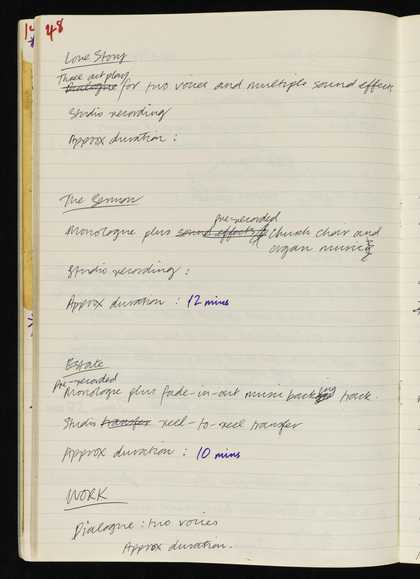 48
Love Story
Three act play
Dialogue for two voices and multiple sound effects
Studio recording
Approx duration :
The Sermon
pre-recorded
Monologue plus sound effects of Church choir and
organ music
Studio recording :
Approx duration : 12 mins
Estate
Pre-recorded
Monologue plus fade-in-out music backing track.
Studio transfer reel-to-reel transfer
Approx duration : 10 mins
WORK
Dialogue : two voices
Approx duration.